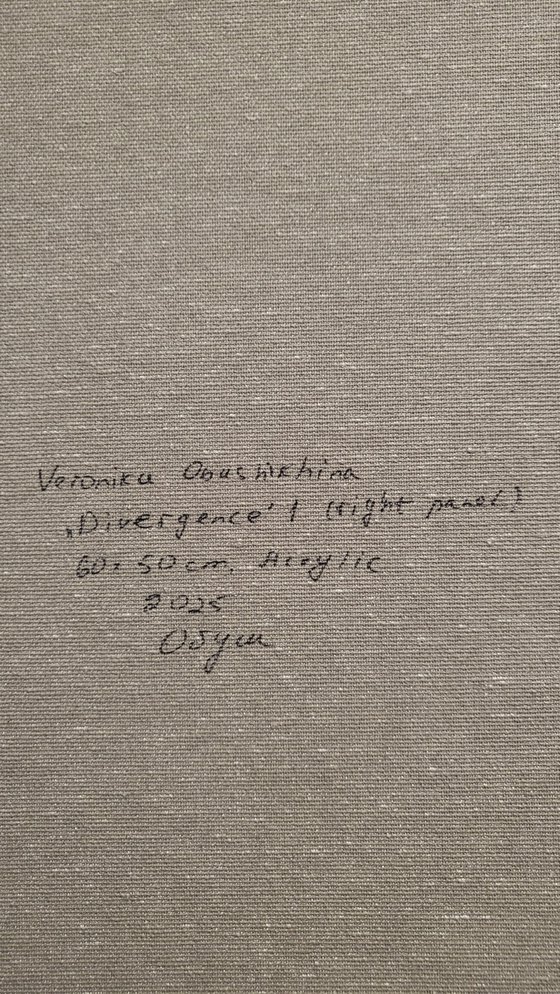 Veronika Obushikhina
„Divergence' 1 (right panel)
60 × 50 cm. Acrylic
2025
Обуш